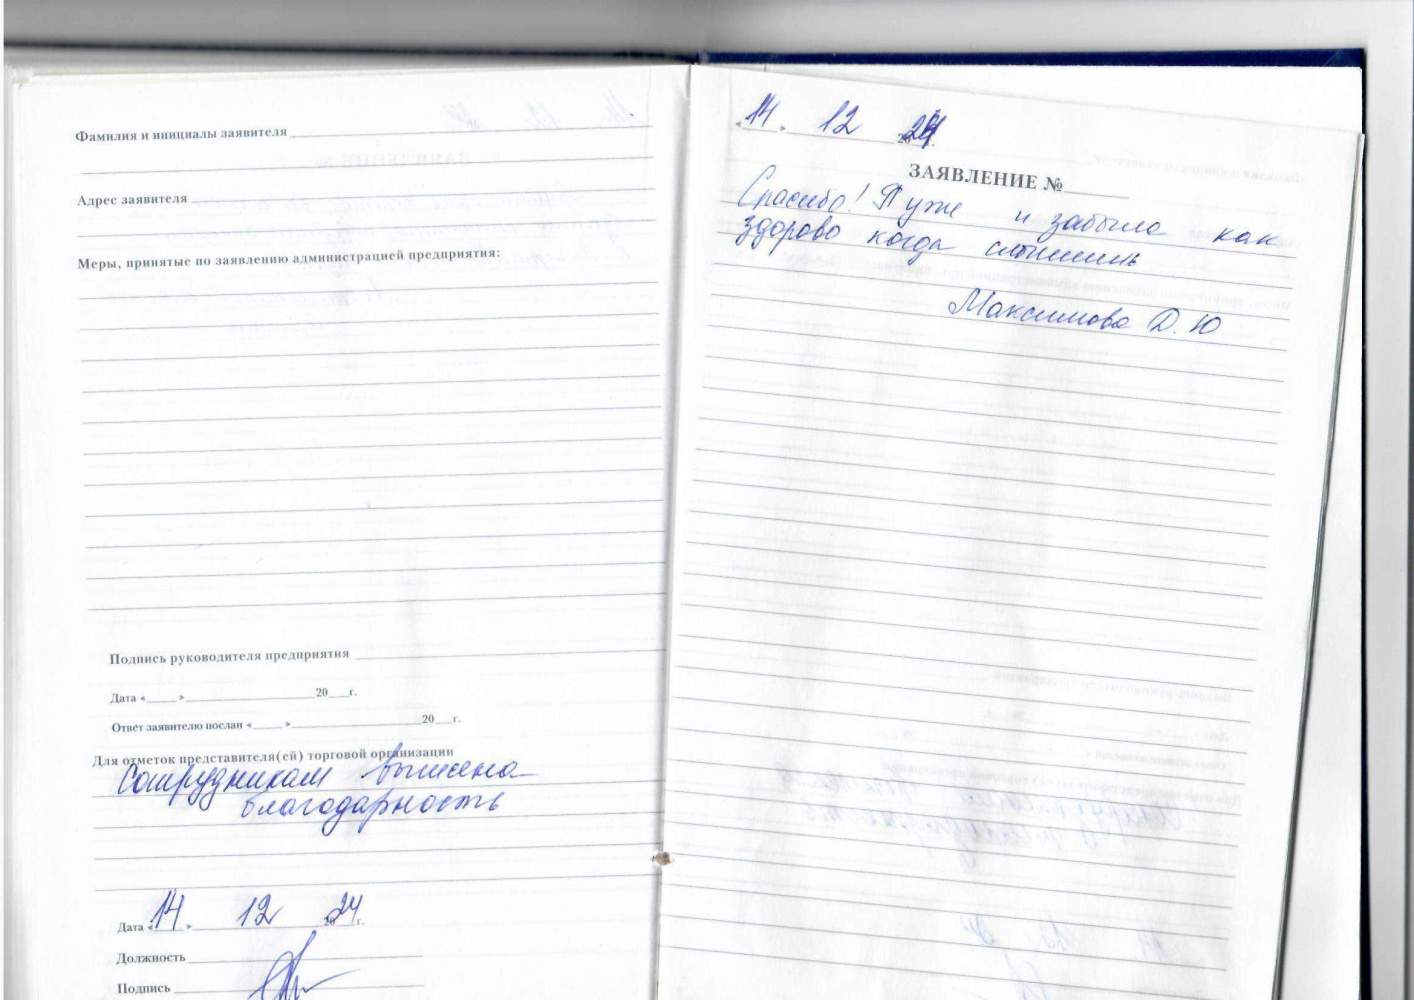 Фамилия и инициалы заявителя
Адрес заявителя
Меры, принятые по заявлению администрацией предприятия:
Подпись руководителя предприятия
Дата « » 20 г.
Ответ заявителю послан « » 20 г.
Для отметок представителя(ей) торговой организации
Сотрудникам вынесена
благодарность
Дата «14» 12 2024 г.
Должность
Подпись
«14» 12 2024 г.
ЗАЯВЛЕНИЕ №
Спасибо! Я уже и забыла как
здорово когда слышишь
Максимова Д. Ю